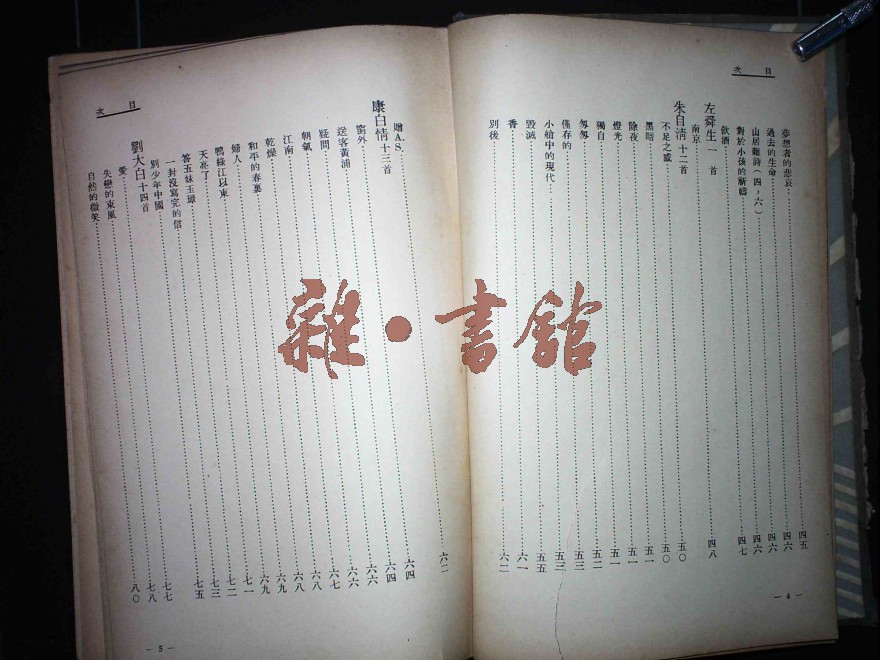 目次
夢想者的悲哀 四五
過去的生命 四六
山居雜詩(四,六) 四六
對於小孩的祈禱 四六
飲酒 四七
左舜生 一首
南京 四八
朱自清 十二首
不足之感 五〇
黑暗 五〇
除夜 五一
燈光 五一
獨自 五二
匆匆 五二
僅存的 五三
小艙中的現代 五三
毀滅 五五
香 六一
別後 六二
—4—
目次
贈A.S. 六二
康白情 十三首
窗外 六四
送客黃浦 六四
疑問 六六
朝氣 六六
江南 六七
乾燥 六八
和平的春裏 六八
婦人 六九
鴨綠江以東 六九
天亮了 七一
答五妹玉璋 七二
一封沒寫完的信 七三
別少年中國 七五
劉大白 十四首
愛 七七
失戀的東風 七八
自然的微笑 八〇
—5—
雜·書館